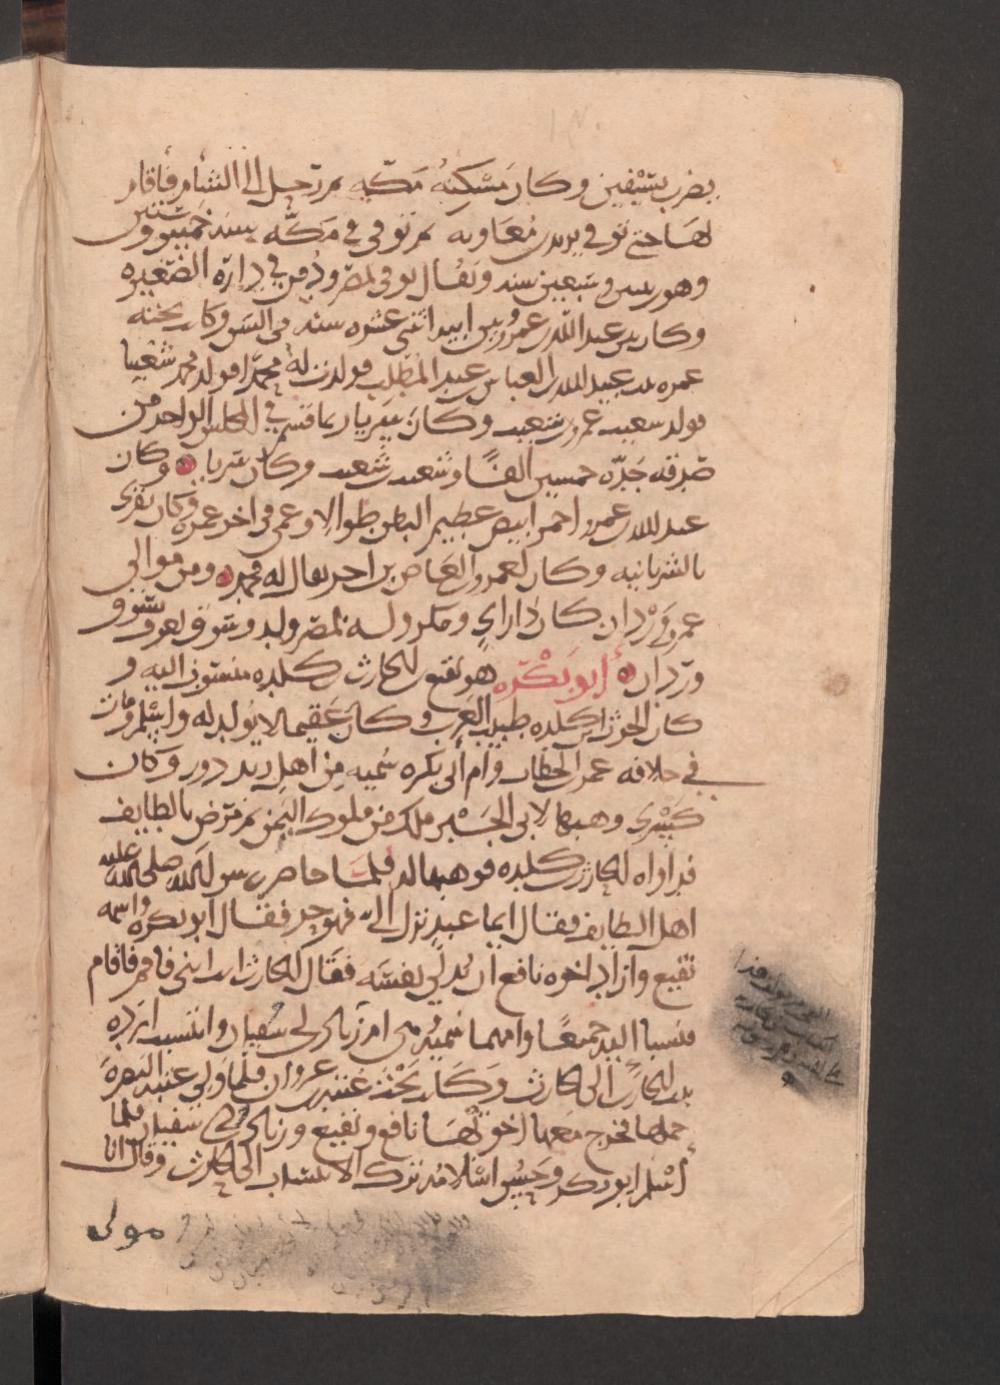 يضرب بسيفين وكان مسكنه مكه ثم رحل الى الشام فاقام
بها حتى توفي يزيد بن معاويه ثم توفي في مكه سنه خمس وستين
وهو ابن وسبعين سنه ويقال توفي بمصر ودفن في داره الصغيره
وكان بين عبد الله بن عمرو وبين ابيه اثنتى عشره سنه في السن وكان تحته
عمره بنت عبيد الله بن العباس بن عبد المطلب فولدت له محمدا فولد محمد شعيبا
فولد شعيب عمرو بن شعيب وكان سريا ربما قسم في المجلس الواحد من
صدقه جده خمسين الفا وشعيب بن شعيب وكان سريا وكان
عبد الله بن عمرو احمر ابيض عظيم البطن طوالا وعمي في اخر عمره وكان يقرى
بالسريانيه وكان لعمرو بن العاص بن اخر يقال له محمد ومن موالي
عمرو وردان كان ذا راي ومكر وله بمصر ولد وسوق يعرف بسوق
وردان ابو بكره هو نفيع بن الحارث بن كلده منسوب اليه و
كان الحرث ابن كلده طبيب العرب وكان عقيما لا يولد له واسلم ومات
في خلافه عمر بن الخطاب وام ابي بكره سميه من اهل زند ورد وكان
كسرى وهبها لابي الجبر ملك من ملوك اليمن ثم مرض بالطايف
فداواه الحارث بن كلده فوهبها له فلما حاصر رسول الله صلى الله عليه
اهل الطايف فقال ايما عبد نزل الي فهو حر فقال ابو بكره واسمه
نفيع واراد اخوه نافع ان يدلي نفسه فقال الحارث انت ابني فاقم فاقام
فنسبا اليه جميعا وامهما سميه هي ام زياد بن ابي سفيان وانتسبت ازده
بنت الحارث الى الحارث وكانت تحت عتبه بن غزوان فلما ولي عتبه البصره
حملها فخرج معها اخوتها نافع ونفيع وزياد بن ابي سفيان فلما
اسلم ابو بكره وحسن اسلامه ترك الانتساب الى الحارث وقال انا
مولى